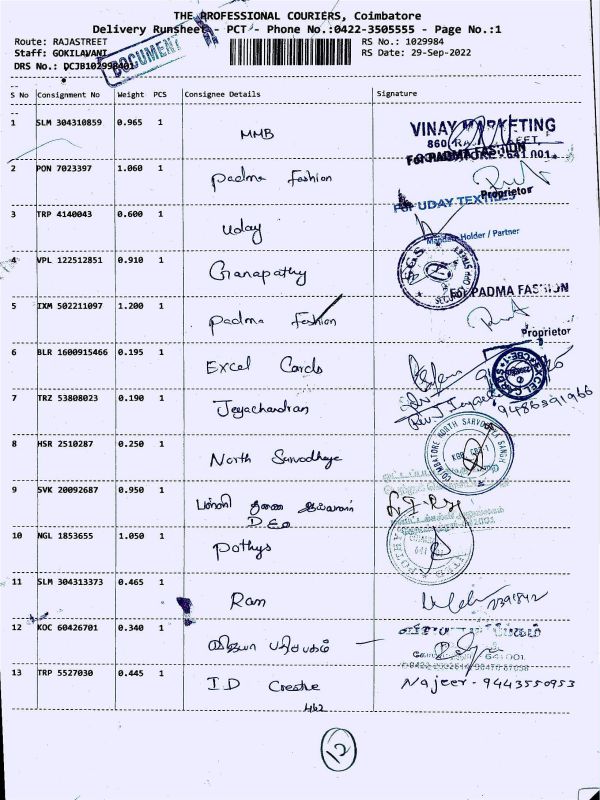 THE PROFESSIONAL COURIERS, Coimbatore
Delivery Runsheet - PCT - Phone No.:0422-3505555 - Page No.:1
Route: RAJASTREET
RS No.: 1029984
Staff: GOKILAVANI
RS Date: 29-Sep-2022
DRS No.: DCJB102998401
DOCUMENT
S No Consignment No Weight PCS Consignee Details Signature
1 SLM 304310859 0.965 1 MMB VINAY MARKETING
2 PON 7023397 1.060 1 Padma Fashion For PADMA FASHION
Proprietor
3 TRP 4140043 0.600 1 Uday For UDAY TEXTILES
Holder / Partner
4 VPL 122512851 0.910 1 Ganapathy
5 IXM 502211097 1.200 1 Padma Fashion For PADMA FASHION
Proprietor
6 BLR 1600915466 0.195 1 Excel Cards
7 TRZ 53808023 0.190 1 Jeyachandran
9486591966
8 HSR 2510287 0.250 1 North Sarvodhaya COIMBATORE NORTH SARVODAYA SANGH
9 SVK 20092687 0.950 1 பள்ளி துணை ஆய்வாளர்
DEO
10 NGL 1853655 1.050 1 Pothys
11 SLM 304313373 0.465 1 Ram
12 KOC 60426701 0.340 1 விஜயா பதிப்பகம்
13 TRP 5527030 0.445 1 ID Creshe Najeer - 9443550953
462
12